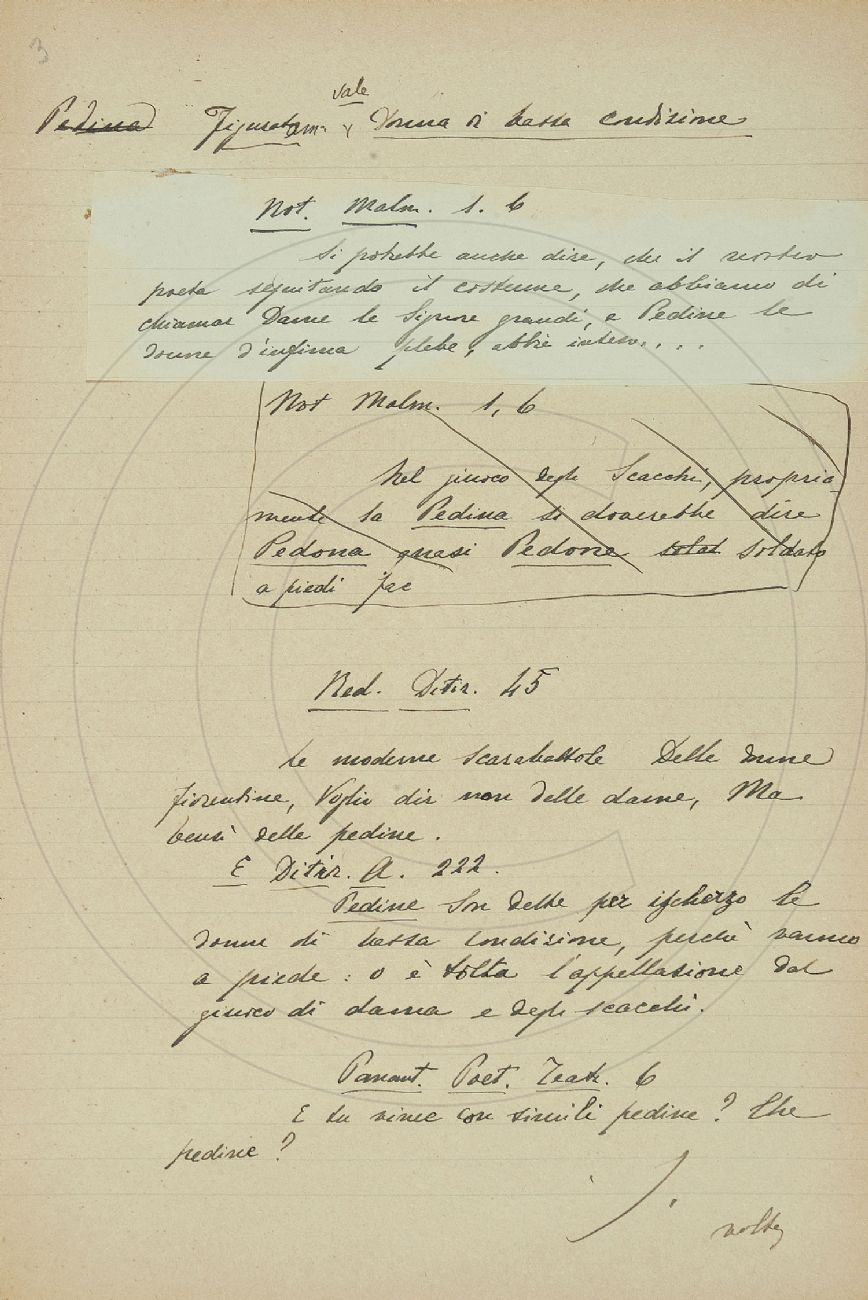 3
vale
Pedina Figuratam. Donna di bassa condizione
Not. Malm. 1. 6
Si potrebbe anche dire, che il nostro
poeta seguitando il costume, che abbiamo di
chiamar Dame le Signore grandi, e Pedine le
donne d'infima plebe, abbia inteso. . . .
Not Malm. 1, 6
Nel giuoco degli Scacchi, propria-
mente la Pedina si dovrebbe dire
Pedona quasi Pedone soldat soldato
a piedi
Red. Ditir. 45
Le moderne scarabattole Delle donne
fiorentine, Voglio dir non delle dame, Ma
bensì delle pedine.
E Ditir. A. 222.
Pedine son dette per ischerzo le
donne di bassa condizione, perchè vanno
a piede: o è tolta l'appellazione dal
giuoco di dama e degli scacchi.
Panant. Poet. Teatr. 6
E tu vinci con simili pedine? Che
pedine?
volta